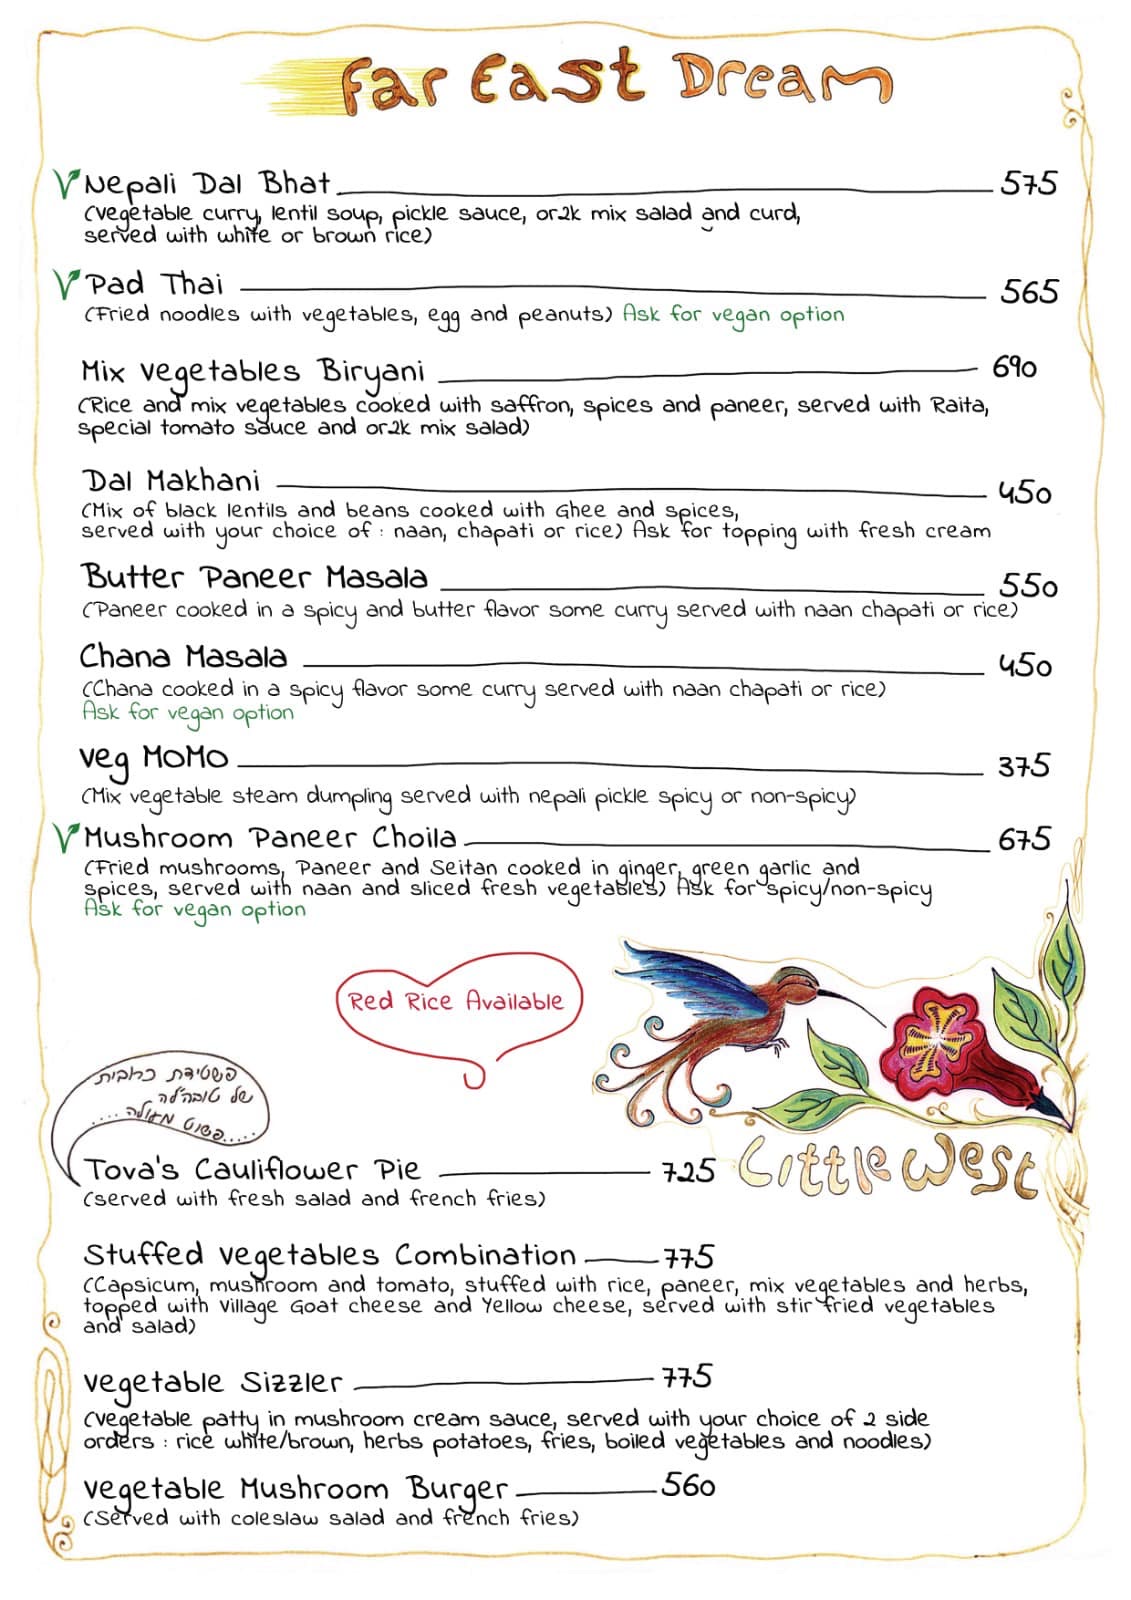 Far East Dream
Nepali Dal Bhat 575
(vegetable curry, lentil soup, pickle sauce, or2k mix salad and curd,
served with white or brown rice)
Pad Thai 565
(Fried noodles with vegetables, egg and peanuts) Ask for vegan option
Mix vegetables Biryani 690
(Rice and mix vegetables cooked with saffron, spices and paneer, served with Raita,
special tomato sauce and or2k mix salad)
Dal Makhani 450
(Mix of black lentils and beans cooked with Ghee and spices,
served with your choice of : naan, chapati or rice) Ask for topping with fresh cream
Butter Paneer Masala 550
(Paneer cooked in a spicy and butter flavor some curry served with naan chapati or rice)
Chana Masala 450
(Chana cooked in a spicy flavor some curry served with naan chapati or rice)
Ask for vegan option
veg MoMo 375
(Mix vegetable steam dumpling served with nepali pickle spicy or non-spicy)
Mushroom Paneer Choila 675
(Fried mushrooms, Paneer and Seitan cooked in ginger, green garlic and
spices, served with naan and sliced fresh vegetables) Ask for spicy/non-spicy
Ask for vegan option
Red Rice Available
פשטידת כרובית
של טובה'לה
פשוט מעולה.....
Little West
Tova's Cauliflower Pie 725
(served with fresh salad and french fries)
Stuffed vegetables Combination 775
(Capsicum, mushroom and tomato, stuffed with rice, paneer, mix vegetables and herbs,
topped with Village Goat cheese and Yellow cheese, served with stir fried vegetables
and salad)
vegetable Sizzler 775
(vegetable patty in mushroom cream sauce, served with your choice of 2 side
orders : rice white/brown, herbs potatoes, fries, boiled vegetables and noodles)
vegetable Mushroom Burger 560
(Served with coleslaw salad and french fries)